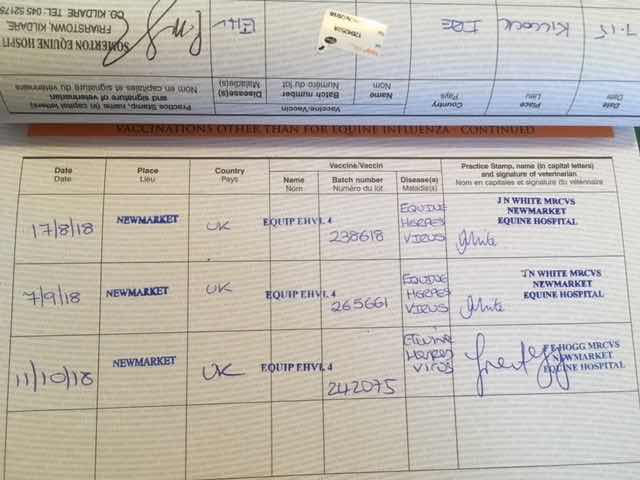 Date
Date
Place
Lieu
Country
Pays
Name
Nom
Vaccine/Vaccin
Batch number
Numéro du lot
Disease(s)
Maladie(s)
Practice Stamp, name (in capital letters)
and signature of veterinarian
Nom en capitales et signature du vétérinaire
7-15
Kilcock
IRE
EHV
SOMERTON EQUINE HOSPIT
FRIARSTOWN, KILDARE
CO. KILDARE. TEL: 045 52175
VACCINATIONS OTHER THAN FOR EQUINE INFLUENZA - CONTINUED
Date
Date
Place
Lieu
Country
Pays
Vaccine/Vaccin
Name
Nom
Batch number
Numéro du lot
Disease(s)
Maladie(s)
Practice Stamp, name (in capital letters)
and signature of veterinarian
Nom en capitales et signature du vétérinaire
17/8/18
NEWMARKET
UK
EQUIP EHV1. 4
238618
EQUINE
HERPES
VIRUS
J N WHITE MRCVS
NEWMARKET
EQUINE HOSPITAL
White
7/9/18
NEWMARKET
UK
EQUIP EHV1. 4
265661
EQUINE
HERPES
VIRUS
J N WHITE MRCVS
NEWMARKET
EQUINE HOSPITAL
White
11/10/18
NEWMARKET
UK
EQUIP EHV1. 4
242075
Equine
Herpes
Virus
HOGG MRCVS
NEWMARKET
EQUINE HOSPITAL